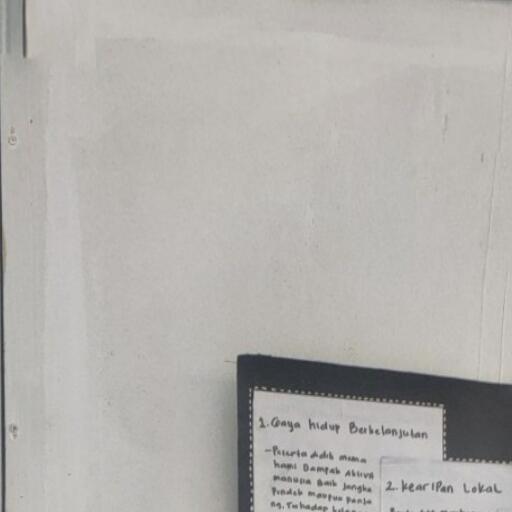 1. Gaya hidup Berkelanjutan
- Peserta didik mema
hami Dampak Aktivi
manusia Baik Jangka
Pendek maupun panja
ng, Terhadap
2. kearipan Lokal